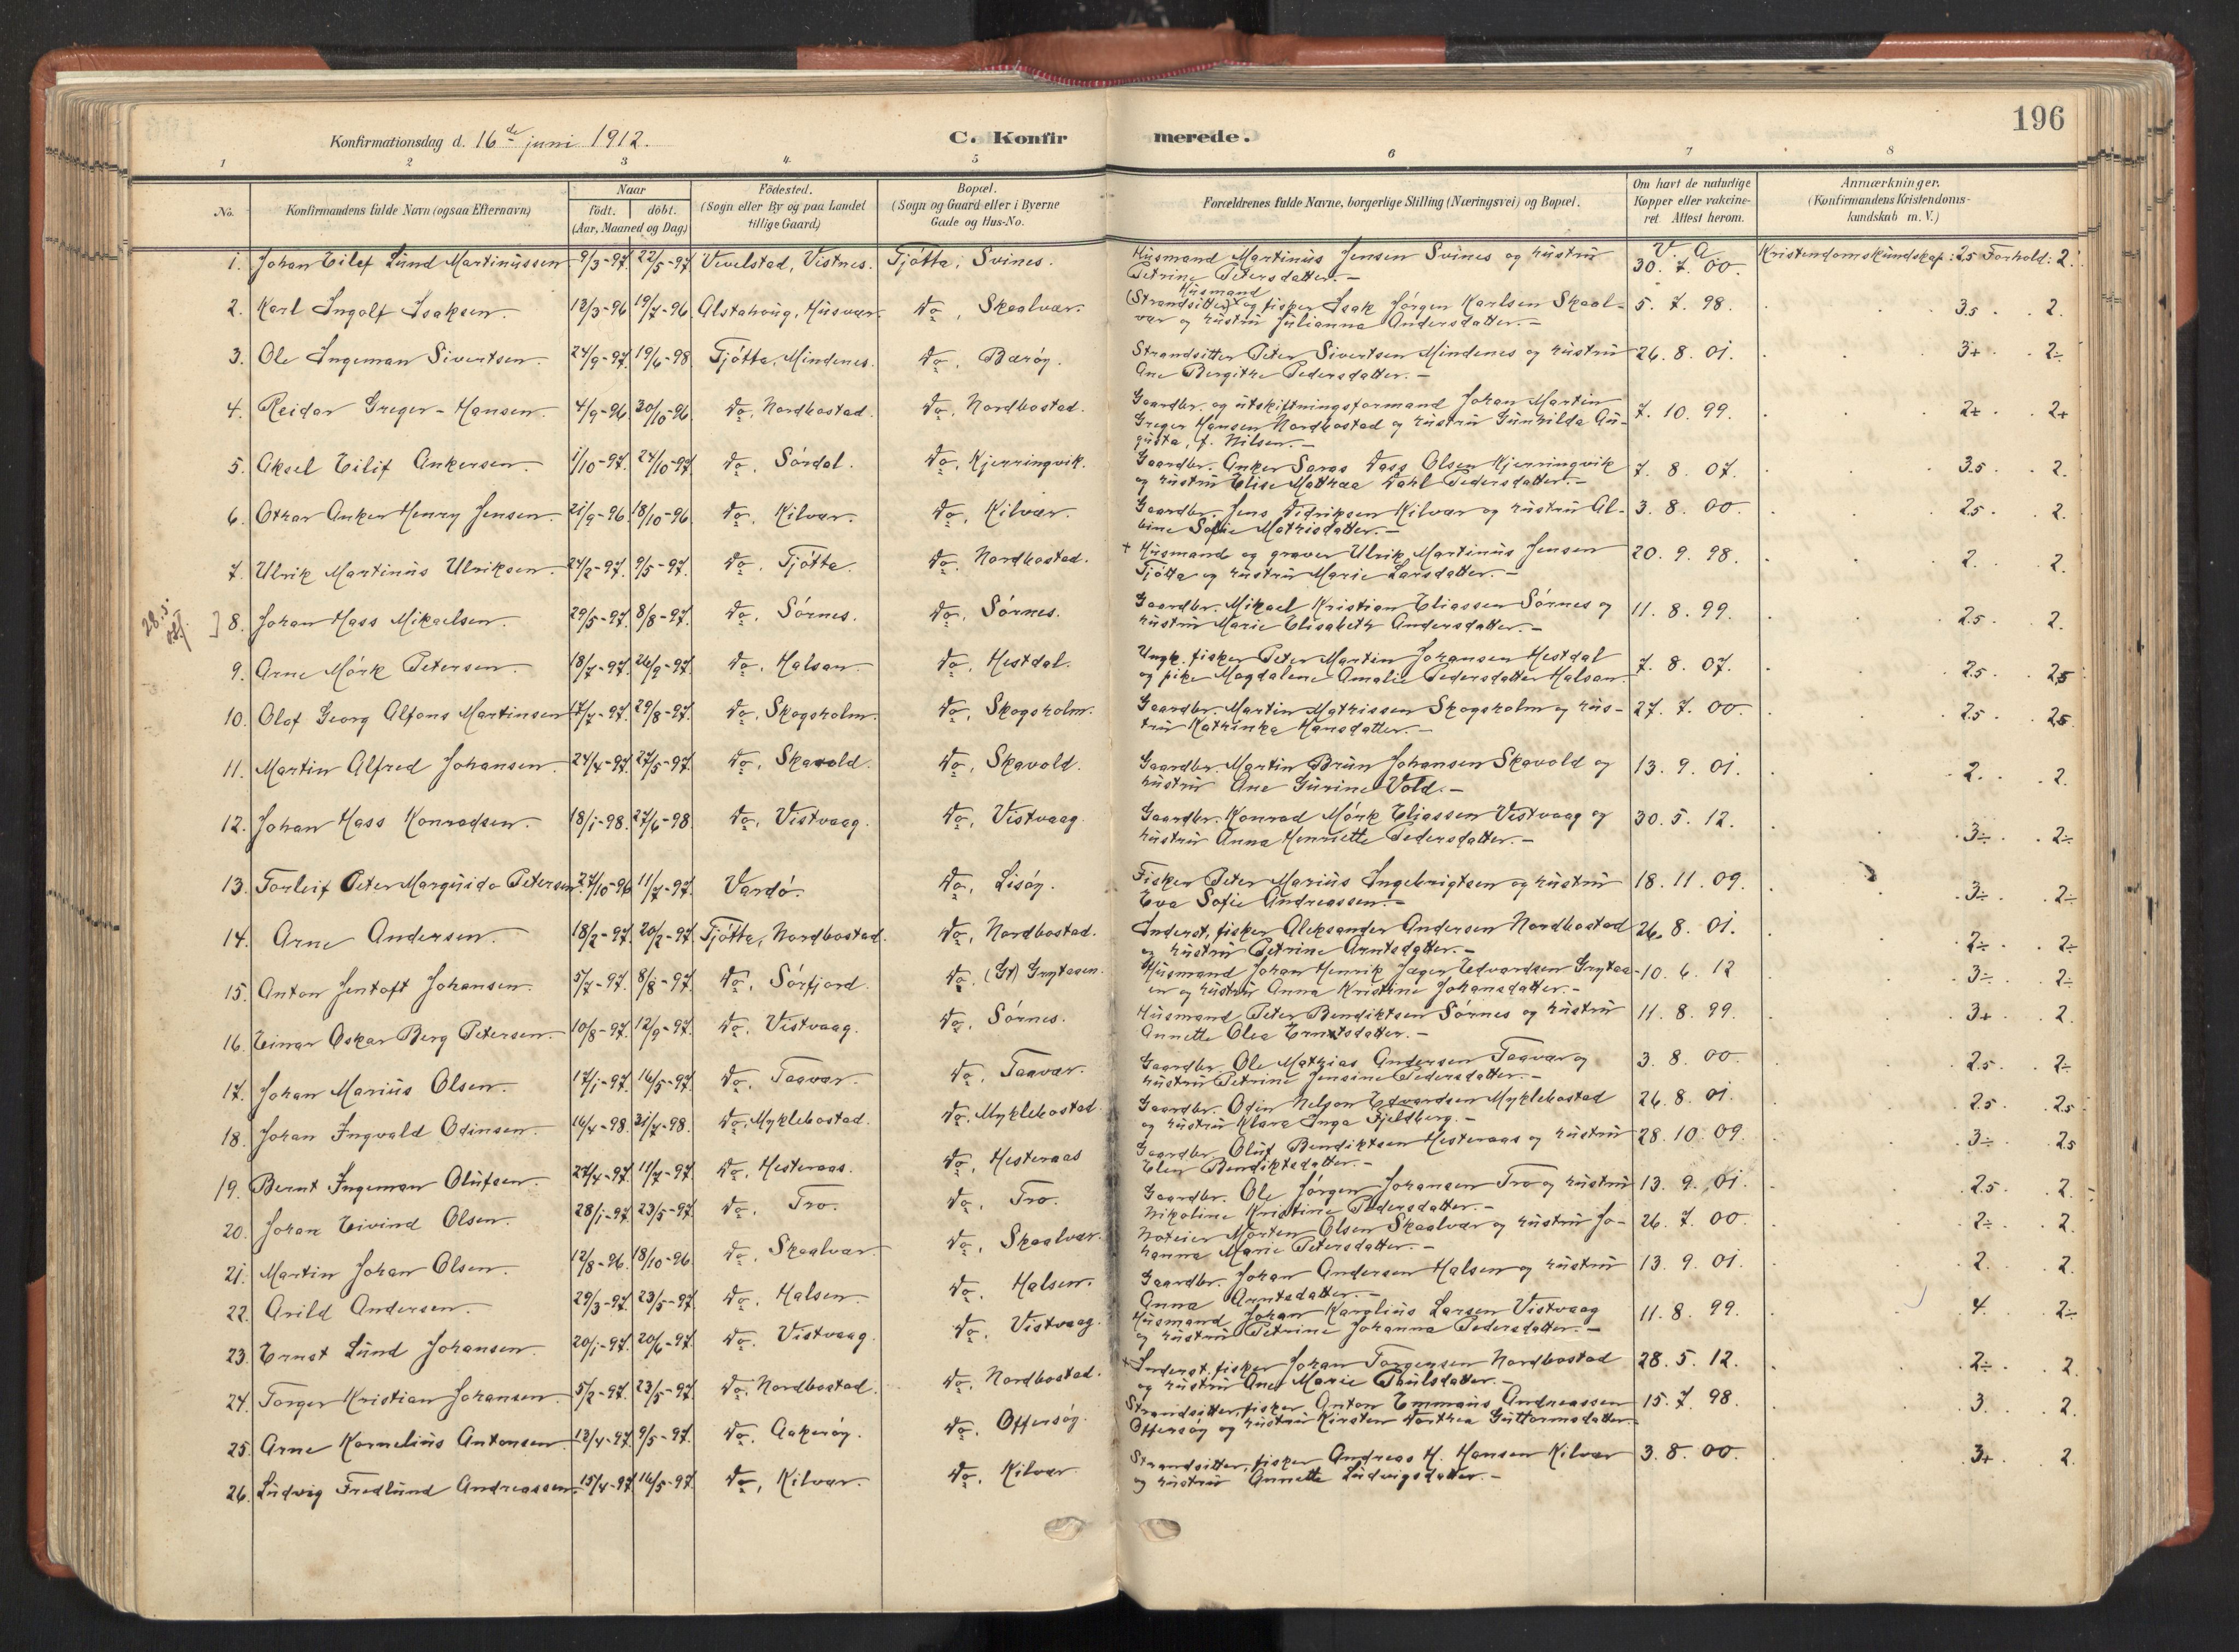 196
Konfirmationsdag d. 16de juni 1912.
C. Konfirmerede.
1 2 3 4. 5 6 7 8
No. Konfirmandens fulde Navn (ogsaa Efternavn) Naar født. døbt. (Aar, Maaned og Dag.) Födested. (Sogn eller By og paa Landet tillige Gaard) Bopæl. (Sogn og Gaard eller i Byerne Gade og Hus-No. Forældrenes fulde Navne, borgerlige Stilling (Næringsvei) og Bopæl. Om havt de naturlige Kopper eller vakcineret. Attest herom. Anmærkninger. (Konfirmandens Kristendomskundskab m. V.)
1. Johan Eilef Lund Martinussen 9/3-97. 22/5-97 Vevelstad, Vistnes. Tjøtta, Svines. Husmand Martinus Jensen Svines og hustru V. A. Kristendomskundskap: 2.5 Forhold: 2.
Petrine Petersdatter.- 30. 7. 00.
2. Karl Ingolf Isaksen. 12/3-96 19/7-96 Alstahoug, Husvær. Do, Skaalvær. Husmand (Strandsitter) og fisker Isak Jørgen Karlsen Skaal- 5. 7. 98. 3.5 2.
vær og hustru Julianna Andersdatter.-
3. Ole Ingeman Sivertsen. 24/9-97. 19/6-98. Tjøtta, Mindenes. Do, Bærøy. Strandsitter Peter Sivertsen Mindenes og hustru 26. 8. 01. 3+ 2÷
Ane Bergithe Pedersdatter.-
4. Reidar Greger-Hansen. 4/9-96 30/10-96. Do, Nordbostad. Do, Nordbostad. Gaardbr. og utskiftningsformand Johan Martin 7. 10. 99. 2+ 2+
Greger Hansen Nordbostad og hustru Gunhilda Au-
gusta, f. Nilsen.-
5. Aksel Eilif Ankersen. 1/10-97. 24/10-97. Do, Sørdal. Do, Kjerringvik. Gaardbr. Anker Saras Dass Olsen Kjerringvik 7. 8. 07. 3.5 2.
og hustru Elise Mathea Dahl Pedersdatter.-
6. Othar Anker Henry Jensen. 21/9-96. 18/10-96. Do, Kilvær. Do, Kilvær. Gaardbr. Jens Didriksen Kilvær og hustru Al- 3. 8. 00. 2.5 2.
bine Sofie Mathisdatter.-
7. Ulrik Martinus Ulriksen. 24/2-97. 9/5-97. Do, Tjøtta. Do, Nordbostad. + Husmand og graver Ulrik Martinus Jensen 20. 9. 98. 2. 2.
Tjøtta og hustru Marie Larsdatter.-
28.5.
8. Johan Hass Mikaelsen. 29/5-97. 8/8-97. Do, Sørnes. Do, Sørnes. Gaardbr. Mikael Kristian Eliassen Sørnes og 11. 8. 99. 2.5 2.
hustru Marie Elisabeth Andersdatter.-
9. Arne Mørk Petersen. 18/7-97. 26/9-97. Do, Halsan. Do, Hestdal. Ungk. fisker Peter Martin Johansen Hestdal 7. 8. 07. 2.5 2.5
og pike Magdalene Amalie Pedersdatter Halsan
10. Olaf Georg Alfons Martinsen 17/7-97. 29/8-97. Do, Skogsholm. Do, Skogsholm. Gaardbr. Martin Mathissen Skogsholm og hus- 27. 7. 00. 2.5 2.5
tru Kathinka Hansdatter.-
11. Martin Alfred Johansen. 24/4-97. 27/5-97. Do, Skavold. Do, Skavold. Gaardbr. Martin Brun Johansen Skavold og 13. 9. 01. 2. 2.
hustru Ane Gurine Vold.-
12. Johan Hass Konradsen. 18/1-98. 27/6-98. Do, Vistvaag. Do, Vistvaag. Gaardbr. Konrad Mørk Eliassen Vistvaag og 30. 5. 12. 3÷ 2÷
hustru Anna Henriette Pedersdatter.-
13. Torleif Peter Marquido Petersen 27/10-96 11/7-97. Vardø. Do, Lisøy. Fisker Peter Marius Ingebrigtsen og hustru 18. 11. 09. 3÷ 2÷
Eva Sofie Andreassen.-
14. Arne Andersen. 18/2-97. 20/2-97. Tjøtta, Nordbostad. Do, Nordbostad. Inderst, fisker Aleksander Andersen Nordbostad 26. 8. 01. 2÷ 2÷
og hustru Petrine Arntsdatter.-
15. Anton Jentoft Johansen. 5/7-97. 8/8-97. Do, Sørfjord. Do, (Gt) Grytaaen. Husmand Johan Henrik Jæger Edvardsen Grytaa- 10. 6. 12 3÷ 2÷
en og hustru Anna Kristine Johansdatter.-
16. Einar Oskar Berg Petersen. 10/8-97. 12/9-97. Do, Vistvaag. Do, Sørnes. Husmand Peter Bendiktsen Sørnes og hustru 11. 8. 99. 3+ 2.
Annette Olea Erntsdatter.-
17. Johan Marius Olsen. 17/1-97. 16/5-97. Do, Taavær. Do, Taavær. Gaardbr. Ole Mathias Andersen Taavær og 3. 8. 00. 2.5 2÷
hustru Petrine Jensine Pedersdatter.-
18. Johan Ingvald Odinsen. 16/4-98. 31/7-98. Do, Myklebostad. Do, Myklebostad. Gaardbr. Odin Nelson Edvardsen Myklebostad 26. 8. 01. 2.5 2.5
og hustru Klara Inga Fjeldberg.-
19. Bernt Ingeman Olufsen. 27/4-97. 11/7-97. Do, Hesteraas. Do, Hesteraas Gaardbr. Oluf Bendiktsen Hesteraas og hustru 28. 10. 09. 3÷ 2.5
Elen Bendiktsdatter.-
20. Johan Eivind Olsen. 28/1-97. 23/5-97. Do, Tro. Do, Tro. Gaardbr. Ole Jørgen Johansen Tro og hustru 13. 9. 01. 2.5 2.
Nikoline Kristine Pedersdatter.-
21. Martin Johan Olsen. 12/8-96. 18/10-96 Do, Skaalvær. Do, Skaalvær. Noteier Morten Olsen Skaalvær og hustru Jo- 26. 7. 00. 2÷ 2.
hanna Marie Petersdatter.-
22. Arild Andersen. 29/3-97. 23/5-97. Do, Halsen. Do, Halsen. Gaardbr. Johan Andersen Halsen og hustru 13. 9. 01. 2. 2.
Anna Arntsdatter.-
23. Ernst Lund Johansen. 20/1-97. 20/6-97. Do. Vistvaag. Do, Vistvaag. Husmand Johan Karolius Larsen Vistvaag 11. 8. 99. 4. 2÷
og hustru Petrine Johanna Pedersdatter.-
24. Torger Kristian Johansen. 5/2-97. 23/5-97. Do. Nordbostad. Do, Nordbostad. + Inderst, fisker Johan Torgersen Nordbostad 28. 5. 12. 2÷ 2.
og hustru Ane Marie Poulsdatter.-
25. Arne Kornelius Antonsen 12/4-97. 9/5-97. Do, Aakerøy. Do, Offersøy. Strandsitter, fisker Anton Emmaus Andreassen 15. 7. 98. 3. 2.
Offersøy og hustru Kirsten Dorthea Guttormsdatter.
26. Ludvig Fredlund Andreassen. 15/4-97 16/5-97. Do, Kilvær. Do, Kilvær. Strandsitter, fisker Andreas H. Hansen Kilvær 3. 8. 00. 3+ 2.
og hustru Annette Ludvigsdatter.-